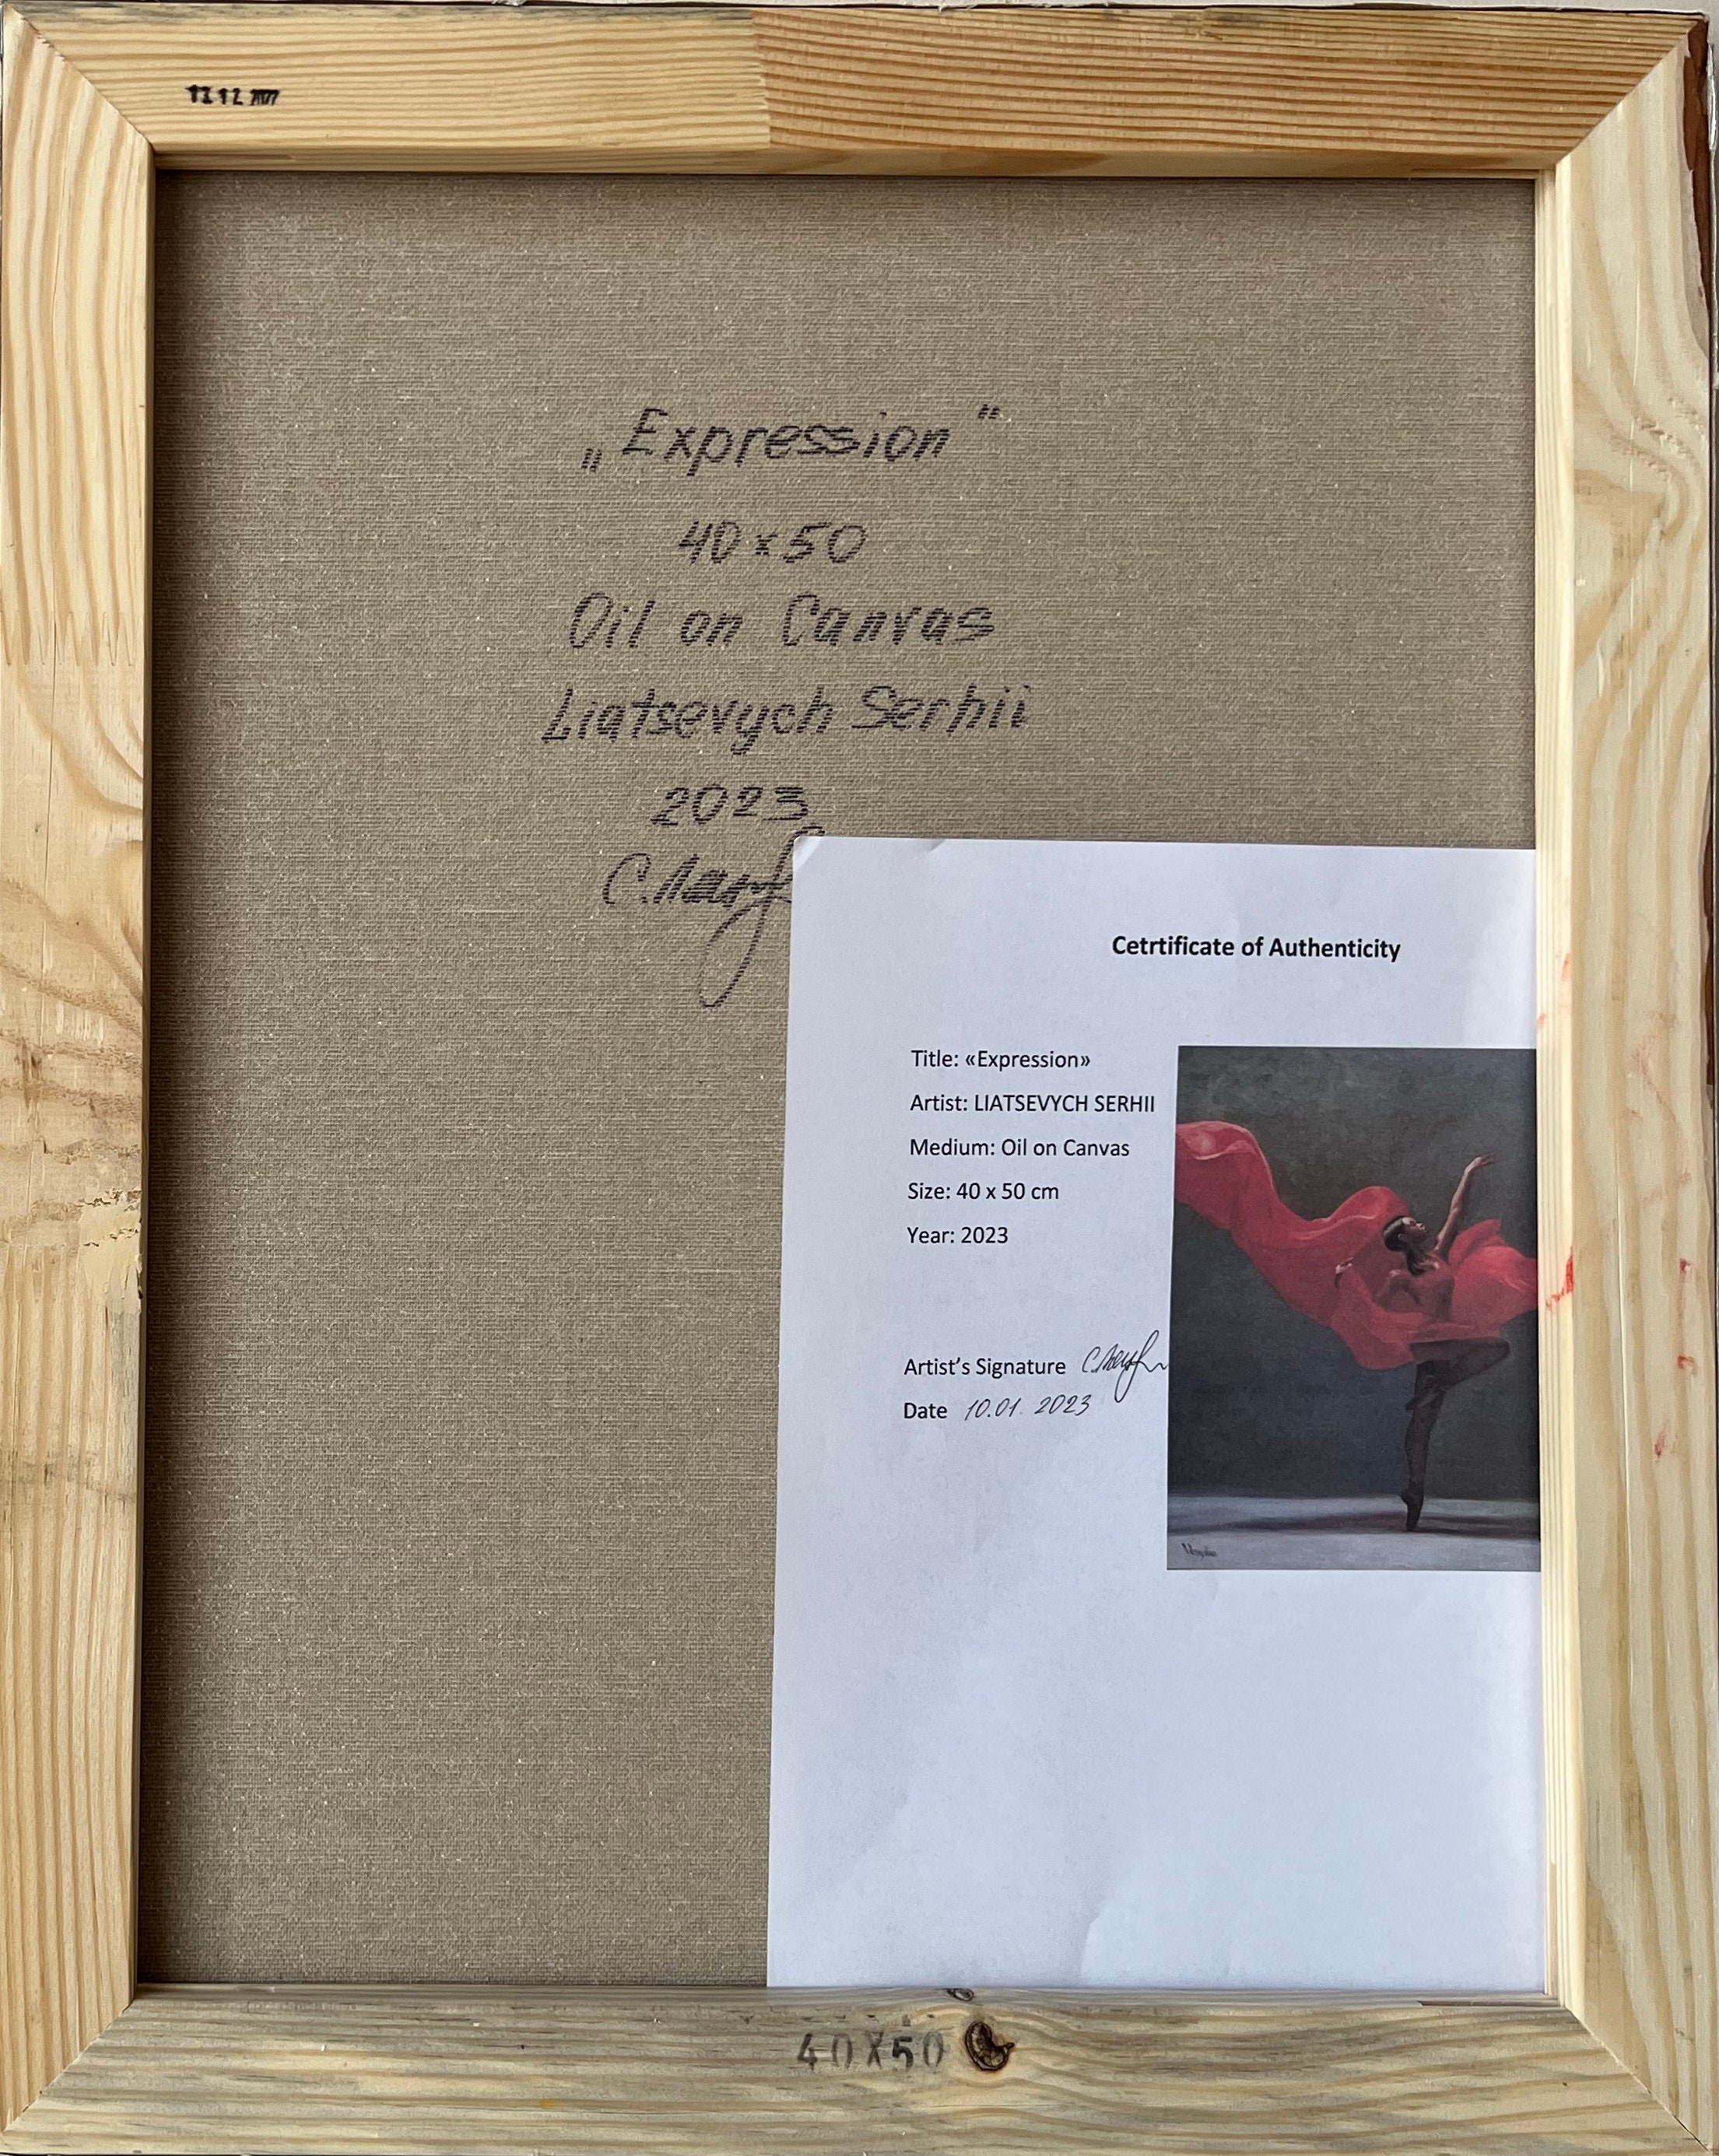 „Expression"
40x50
Oil on Canvas
Liatsevych Serhii
2023
Cetrtificate of Authenticity
Title: «Expression»
Artist: LIATSEVYCH SERHII
Medium: Oil on Canvas
Size: 40 x 50 cm
Year: 2023
Artist's Signature
Date 10.01.2023
40X50